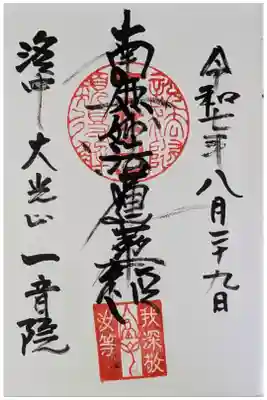 令和七年八月二十九日
南無妙法蓮華経
我深敬
汝等
洛中 大光山 一音院